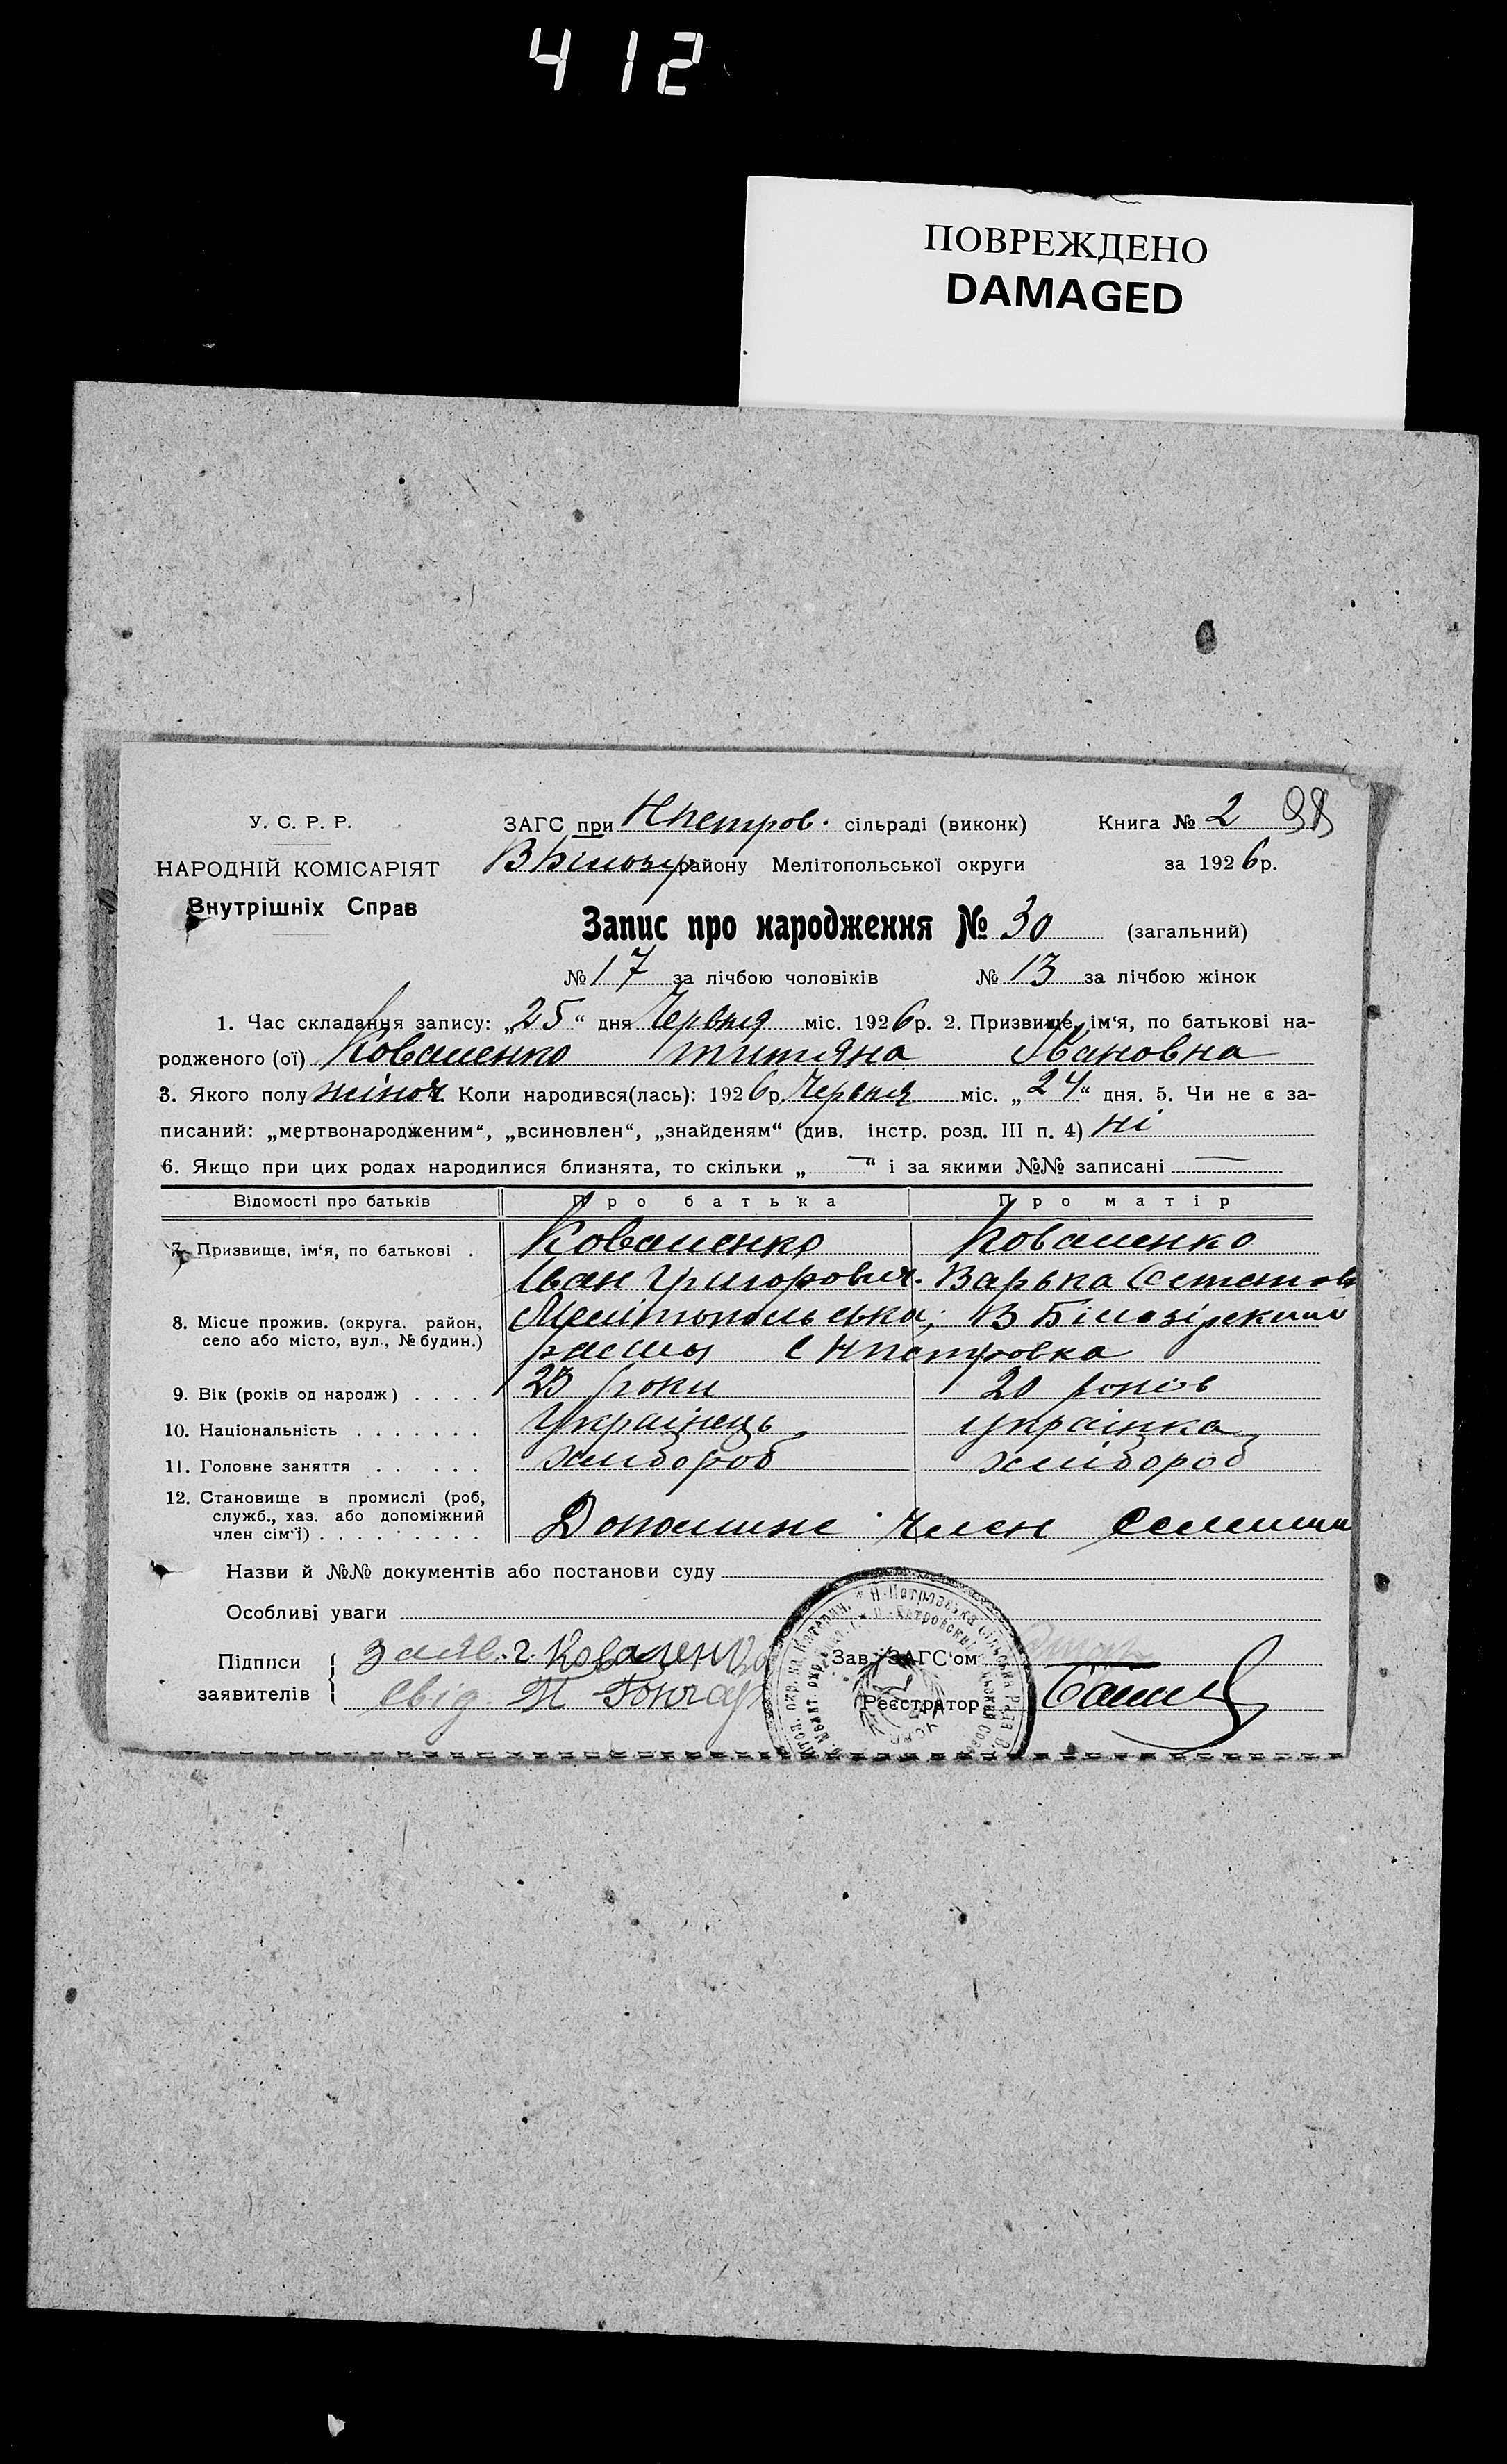 412
ПОВРЕЖДЕНО
DAMAGED
У. С. Р. Р.
НАРОДНІЙ КОМІСАРІЯТ
Внутрішніх Справ
ЗАГС при Нпетров. сільраді (виконк) Книга № 2 98
ВБілозір району Мелітопольської округи за 1926р.
Запис про народження № 30 (загальний)
№ 17 за лічбою чоловіків № 13 за лічбою жінок
1. Час складання запису: „25“ дня Червня міс. 1926р. 2. Призвище, ім‘я, по батькові на-
родженого (ої) Коваленко Титяна Івановна
3. Якого полу жіноч Коли народився(лась): 1926р. Червня міс. „24“ дня. 5. Чи не є за-
писаний: „мертвонародженим“, „всиновлен“, „знайденям“ (див. інстр. розд. III п. 4) ні
6. Якщо при цих родах народилися близнята, то скільки „—“ і за якими №№ записані —
Відомості про батьків Про батька Про матір
7. Призвище, ім‘я, по батькові . Коваленко Коваленко
Іван Григорович. Варька
8. Місце прожив. (округа. район, село або місто, вул., № будин.) Мелітопольська, В Білозірским
с Нпетровка
9. Вік (років од народж) . . . . 23 роки 20 років
10. Національність . . . . . . . Українець українка
11. Головне заняття . . . . . хлибороб хлібороб
12. Становище в промислі (роб, служб., хаз. або допоміжний член сім‘ї) . . . . . . . . . член
Назви й №№ документів або постанови суду
Особливі уваги
Підписи заявителів
заяв. г. Коваленко
Свід. П Гончар
Зав. ЗАГС‘ом
Реєстратор